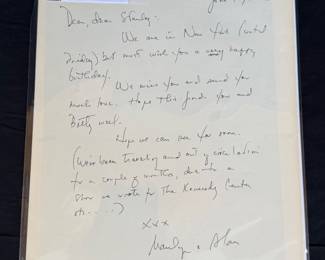 June
Dear, dear Stanley -
We are in New York (until
Friday) but must wish you a very happy
birthday.
We miss you and send you
much love. Hope this finds you and
Betty well.
Hope we can see you soon.
(We've been traveling and out of circulation
for a couple of months, due to a
show we wrote for the Kennedy Center
etc.....)
xxx
Marilyn & Alan